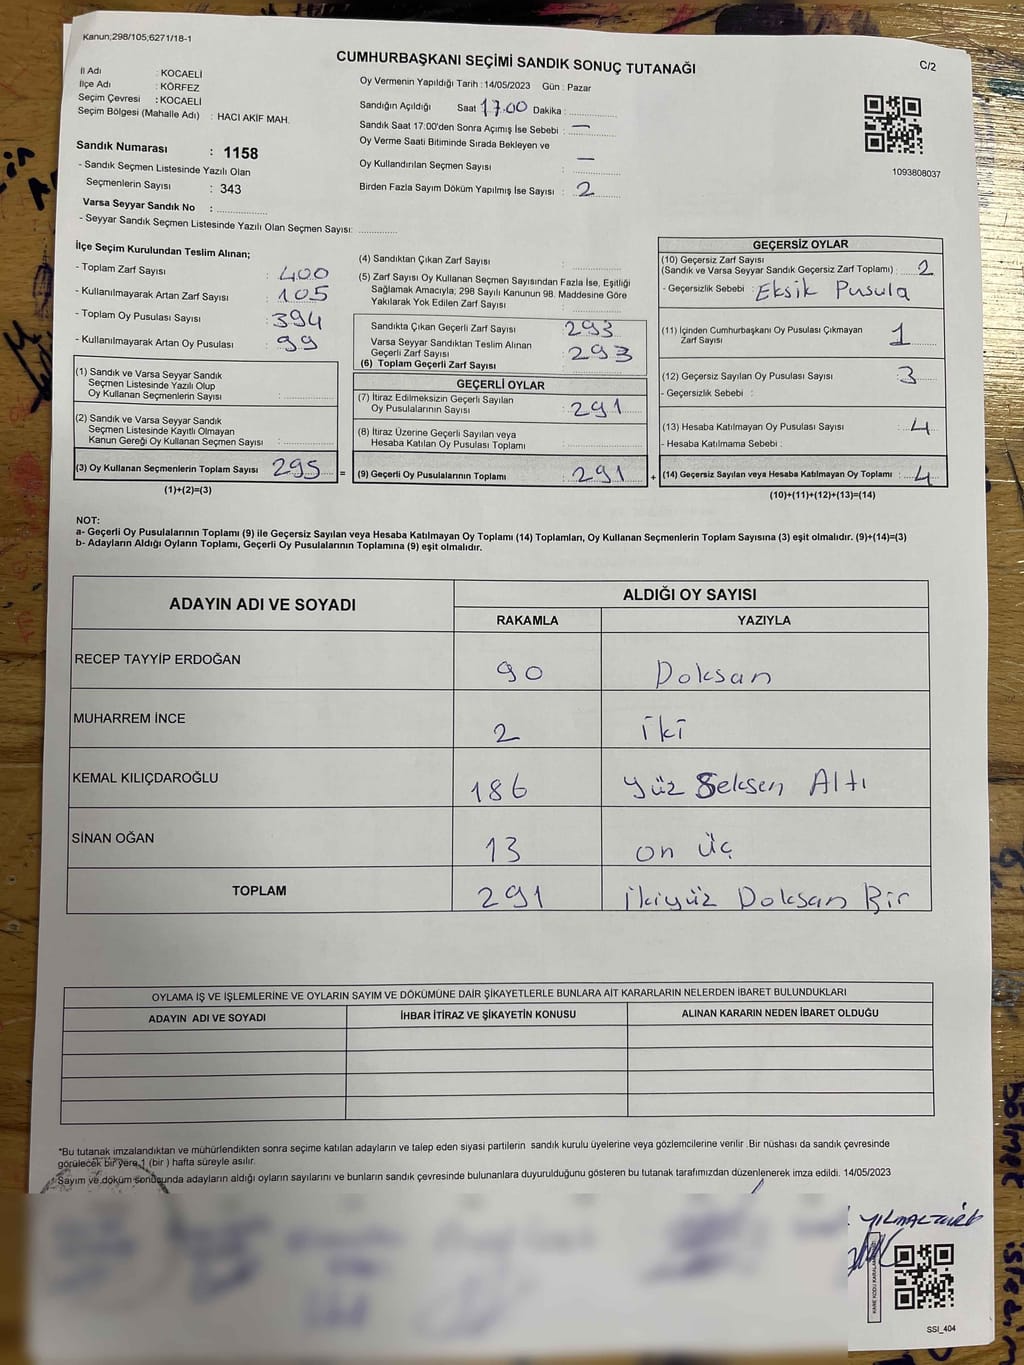 Kanun;298/105;6271/18-1
CUMHURBAŞKANI SEÇİMİ SANDIK SONUÇ TUTANAĞI
C/2
İl Adı : KOCAELİ
İlçe Adı : KÖRFEZ
Seçim Çevresi : KOCAELİ
Seçim Bölgesi (Mahalle Adı) : HACI AKİF MAH.
Sandık Numarası : 1158
- Sandık Seçmen Listesinde Yazılı Olan
Seçmenlerin Sayısı : 343
Varsa Seyyar Sandık No :
- Seyyar Sandık Seçmen Listesinde Yazılı Olan Seçmen Sayısı:
Oy Vermenin Yapıldığı Tarih : 14/05/2023 Gün : Pazar
Sandığın Açıldığı Saat 17.00 Dakika :
Sandık Saat 17:00'den Sonra Açımış İse Sebebi : —
Oy Verme Saati Bitiminde Sırada Bekleyen ve
Oy Kullandırılan Seçmen Sayısı : —
Birden Fazla Sayım Döküm Yapılmış İse Sayısı : 2
1093808037
İlçe Seçim Kurulundan Teslim Alınan;
- Toplam Zarf Sayısı : 400
- Kullanılmayarak Artan Zarf Sayısı : 105
- Toplam Oy Pusulası Sayısı : 394
- Kullanılmayarak Artan Oy Pusulası : 99
(1) Sandık ve Varsa Seyyar Sandık
Seçmen Listesinde Yazılı Olup
Oy Kullanan Seçmenlerin Sayısı :
(2) Sandık ve Varsa Seyyar Sandık
Seçmen Listesinde Kayıtlı Olmayan
Kanun Gereği Oy Kullanan Seçmen Sayısı :
(3) Oy Kullanan Seçmenlerin Toplam Sayısı 295 =
(1)+(2)=(3)
(4) Sandıktan Çıkan Zarf Sayısı :
(5) Zarf Sayısı Oy Kullanan Seçmen Sayısından Fazla İse, Eşitliği
Sağlamak Amacıyla; 298 Sayılı Kanunun 98. Maddesine Göre
Yakılarak Yok Edilen Zarf Sayısı :
Sandıkta Çıkan Geçerli Zarf Sayısı : 293
Varsa Seyyar Sandıktan Teslim Alınan
Geçerli Zarf Sayısı : 293
(6) Toplam Geçerli Zarf Sayısı :
GEÇERLİ OYLAR
(7) İtiraz Edilmeksizin Geçerli Sayılan
Oy Pusulalarının Sayısı : 291
(8) İtiraz Üzerine Geçerli Sayılan veya
Hesaba Katılan Oy Pusulası Toplamı :
(9) Geçerli Oy Pusulalarının Toplamı : 291 +
GEÇERSİZ OYLAR
(10) Geçersiz Zarf Sayısı
(Sandık ve Varsa Seyyar Sandık Geçersiz Zarf Toplamı) : 2
- Geçersizlik Sebebi : Eksik Pusula
(11) İçinden Cumhurbaşkanı Oy Pusulası Çıkmayan
Zarf Sayısı : 1
(12) Geçersiz Sayılan Oy Pusulası Sayısı : 3
- Geçersizlik Sebebi :
(13) Hesaba Katılmayan Oy Pusulası Sayısı : 4
- Hesaba Katılmama Sebebi :
(14) Geçersiz Sayılan veya Hesaba Katılmayan Oy Toplamı : 4
(10)+(11)+(12)+(13)=(14)
NOT:
a- Geçerli Oy Pusulalarının Toplamı (9) ile Geçersiz Sayılan veya Hesaba Katılmayan Oy Toplamı (14) Toplamları, Oy Kullanan Seçmenlerin Toplam Sayısına (3) eşit olmalıdır. (9)+(14)=(3)
b- Adayların Aldığı Oyların Toplamı, Geçerli Oy Pusulalarının Toplamına (9) eşit olmalıdır.
ADAYIN ADI VE SOYADI
ALDIĞI OY SAYISI
RAKAMLA YAZIYLA
RECEP TAYYİP ERDOĞAN 90 Doksan
MUHARREM İNCE 2 iki
KEMAL KILIÇDAROĞLU 186 yüz Seksen Altı
SİNAN OĞAN 13 on üç
TOPLAM 291 ikiyüz Doksan Bir
OYLAMA İŞ VE İŞLEMLERİNE VE OYLARIN SAYIM VE DÖKÜMÜNE DAİR ŞİKAYETLERLE BUNLARA AİT KARARLARIN NELERDEN İBARET BULUNDUKLARI
ADAYIN ADI VE SOYADI İHBAR İTİRAZ VE ŞİKAYETİN KONUSU ALINAN KARARIN NEDEN İBARET OLDUĞU
*Bu tutanak imzalandıktan ve mühürlendikten sonra seçime katılan adayların ve talep eden siyasi partilerin sandık kurulu üyelerine veya gözlemcilerine verilir .Bir nüshası da sandık çevresinde
görülecek bir yere 1 (bir ) hafta süreyle asılır.
Sayım ve döküm sonucunda adayların aldığı oyların sayılarını ve bunların sandık çevresinde bulunanlara duyurulduğunu gösteren bu tutanak tarafımızdan düzenlenerek imza edildi. 14/05/2023
SSI_404